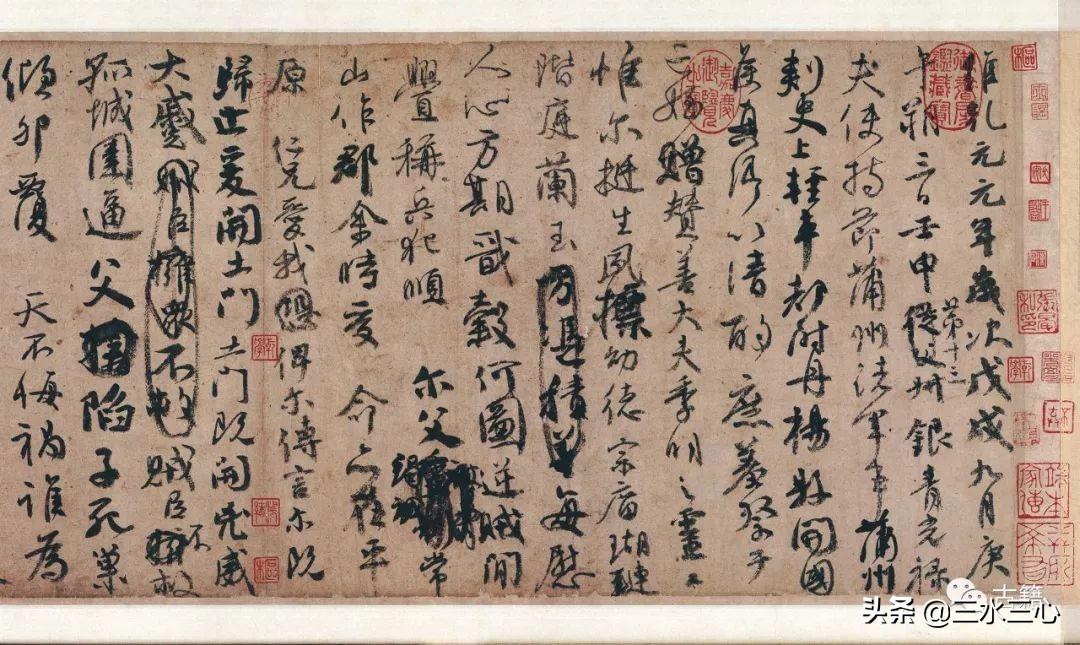 維乾元元年歲次戊戌九月庚
午朔三日壬申第十三從父銀青光祿
夫使持節蒲州諸軍事蒲州
刺史上輕車都尉丹楊縣開國
侯真卿以清酌庶羞祭于
亡姪贈贊善大夫季明之靈曰
惟爾挺生夙標幼德宗廟瑚璉
階庭蘭玉方憑積善每慰
人心方期戩穀何圖逆賊間
釁稱兵犯順爾父竭誠常
山作郡余時受命亦在平
原仁兄愛我恐俾爾傳言爾既
歸止爰開土門土門既開兇威
大蹙賊臣擁眾不救賊臣不救
孤城圍逼父擒陷子死巢
傾卵覆天不悔禍誰為
嘉慶御覽之寶
御書房鑑藏寶
古籍
头条 @三水三心